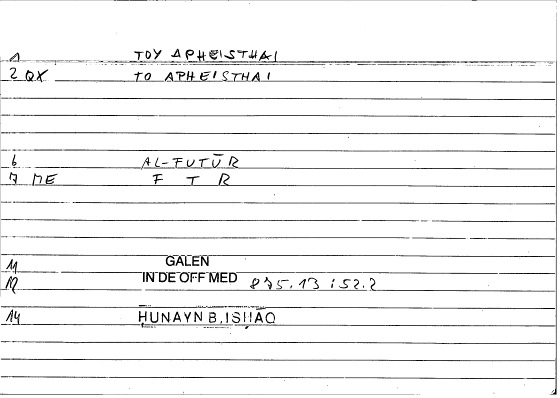 1 TOY APHEISTHAI
2 QX TO APHEISTHAI
6 AL-FUTŪR
7 ME F T R
11 GALEN
12 IN DE OFF MED 875.13 :52.2
14 ḤUNAYN B. ISḤĀQ